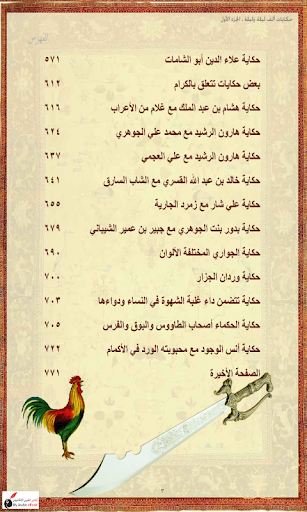 حكايات ألف ليلة وليلة - الجزء الأول
الفهرس
حكاية علاء الدين أبو الشامات ٥٧١
بعض حكايات تتعلق بالكرام ٦١٢
حكاية هشام بن عبد الملك مع غلام من الأعراب ٦١٦
حكاية هارون الرشيد مع محمد علي الجوهري ٦٢٤
حكاية هارون الرشيد مع علي العجمي ٦٣٧
حكاية خالد بن عبد الله القسري مع الشاب السارق ٦٤١
حكاية علي شار مع زمرد الجارية ٦٥٥
حكاية بدور بنت الجوهري مع جبير بن عمير الشيباني ٦٧٩
حكاية الجواري المختلفة الألوان ٦٩٠
حكاية وردان الجزار ٧٠٠
حكاية تتضمن داء غلبة الشهوة في النساء ودواءها ٧٠٣
حكاية الحكماء أصحاب الطاووس والبوق والفرس ٧٠٥
حكاية أنس الوجود مع محبوبته الورد في الأكمام ٧٢٢
الصفحة الأخيرة ٧٧١
٣